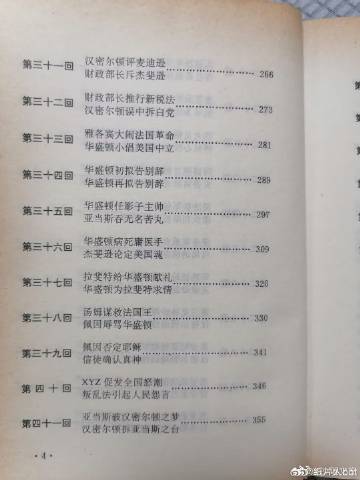 第三十一回 汉密尔顿评麦迪逊
财政部长斥杰斐逊 266
第三十二回 财政部长推行新税法
汉密尔顿误中拆白党 273
第三十三回 雅各宾大闹法国革命
华盛顿小倡美国中立 281
第三十四回 华盛顿初拟告别辞
华盛顿再拟告别辞 289
第三十五回 华盛顿任影子主帅
亚当斯吞无名苦丸 297
第三十六回 华盛顿病死庸医手
杰斐逊论定美国魂 309
第三十七回 拉斐特给华盛顿献礼
华盛顿为拉斐特求情 320
第三十八回 汤姆谋救法国王
佩因辱骂华盛顿 330
第三十九回 佩因否定耶稣
信徒确认真神 341
第四十回 XYZ促发全国怒潮
叛乱法引起人民怨言 346
第四十一回 亚当斯破汉密尔顿之梦
汉密尔顿拆亚当斯之台 355
· 4 ·